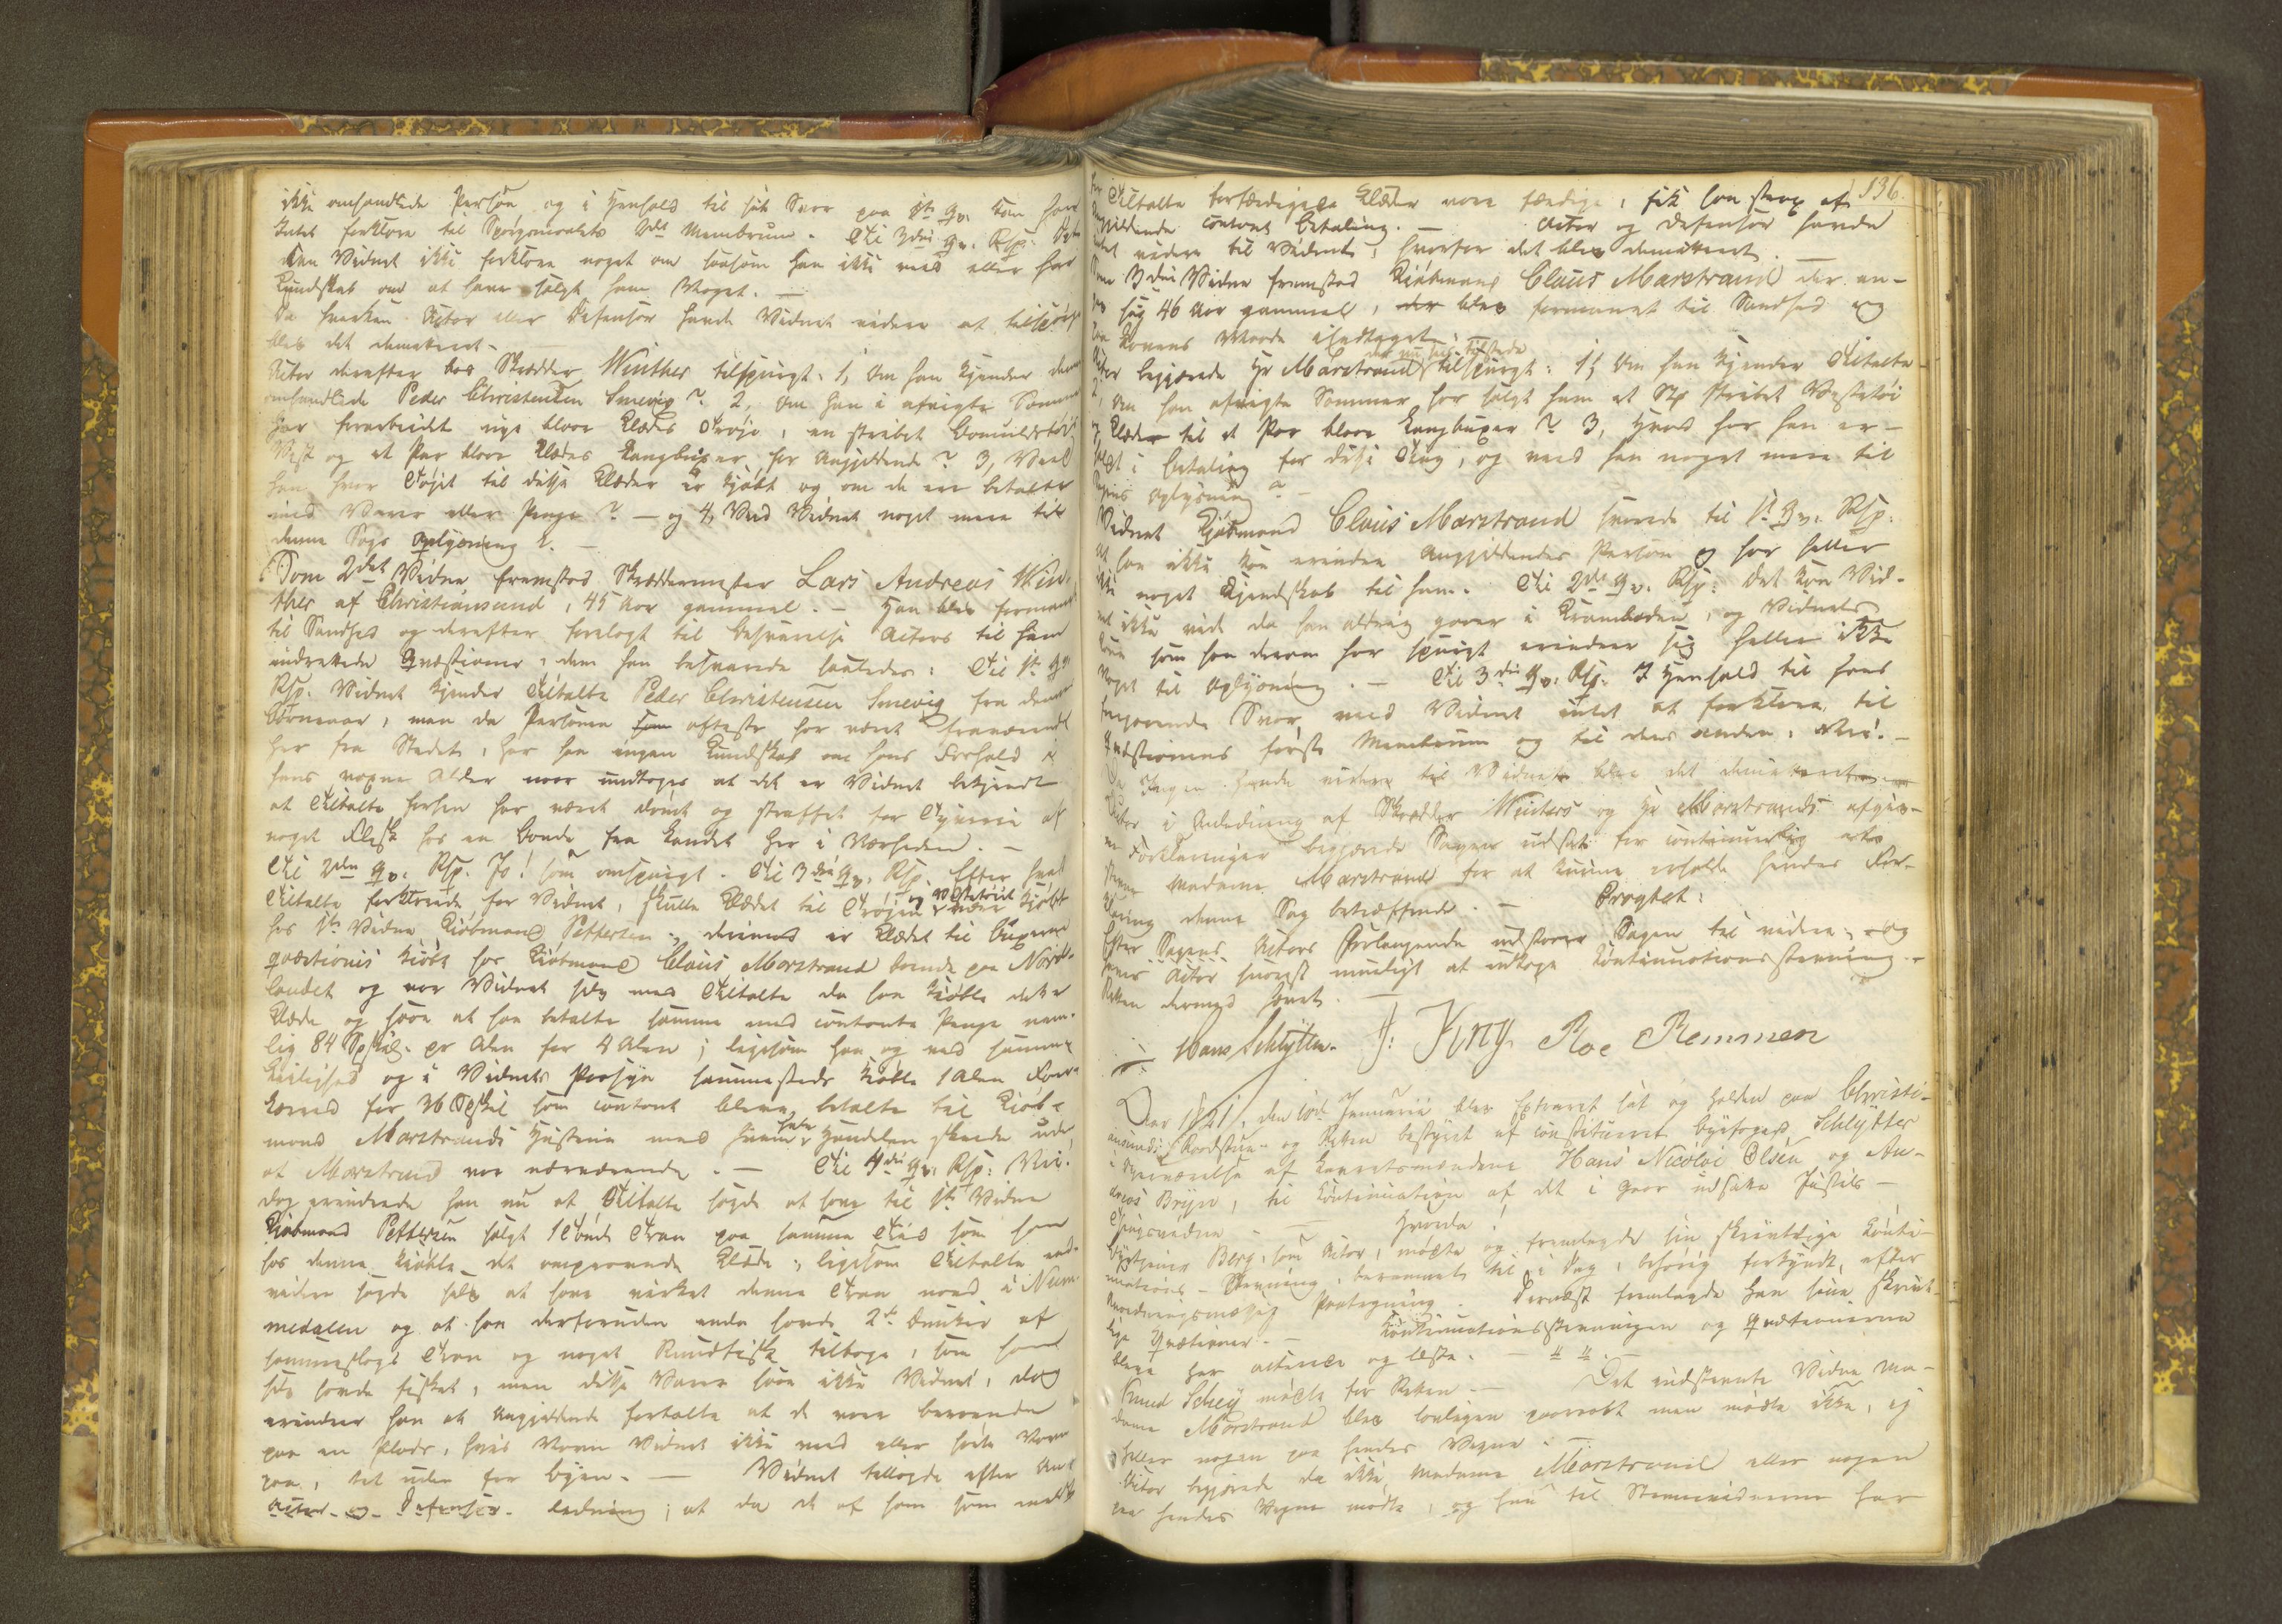 ikke omhandlede Person og i Henhold til sit Svar paa 1te Qv. kan han
Intet forklare til Spørgsmaalets 2det Membrum. Til 3die Qv. Rsp:
kan Vidnet ikke forklare noget om saasom han ikke veed eller har
Kundskab om at have solgt ham Noget. —
Da hverken Actor eller Defensor havde Vidnet videre at tilspørge
blev det demitteret.
Actor derefter Skrædder Winther tilspurgt: 1, Om han kjender den
omhandlede Peder Christensen Smevig? 2, Om han i afvigte Sommer
har forarbeidet nye blaae Klædes Trøje, en stribet Bomuldstøis
Vest og et Par blaae Klædes Langbuxer for Angjeldende? 3, Veed
han hvor Tøjet til disse Klæder er kjøbt og om de ere betalte
med Varer eller Penge? — og 4, Veed Vidnet noget mere til
denne Sags Oplysning?. —
Som 2det Vidne fremstod Skræddermester Lars Andreas Win-
ther af Christiansund, 45 Aar gammel. — Han blev formanet
til Sandhed og derefter forelagt til Besvarelse Actors til ham
indrettede Qvæstioner, dem han besvarede saaledes: Til 1te Qv
Rsp. Vidnet kjender Tiltalte Peder Christensen Smevig fra dennes
Børneaar, men da Personen som oftest har været fraværende
her fra Stedet, har han ingen Kundskab om hans Forhold i
hans voxne Alder naar undtages at det er Vidnet bekjendt
at Tiltalte forhen har været dømt og straffet for Tyverie af
noget Flesk hos en Bonde fra Landet her i Nærheden. —
Til 2den Qv. Rsp. Jo! som omspurgt. Til 3die Qv. Rsp. Efter hvad
Tiltalte forklarede for Vidnet, skulle Klædet til Trøjen og Vestetøiet være kjøbt
hos 1te Vidne Kjøbmand Pettersen, derimod er Klædet til Buxerne
quæstionis kjøbt hos Kjøbmand Claus Marstrand boende paa Nord-
landet og var Vidnet selv med Tiltalte da han kjøbte dette
Klæde og saae at han betalte samme med contante Penge nem-
lig 84 Spskil. pr Alen for 4 Alen; ligesom han og ved samme
Leilighed og i Vidnets Paasyn sammesteds kjøbte 1 Alen
for 36 Spskil som contant bleve betalte til Kjøb-
mand Marstrands Hustrue med hvem hele Handelen skeede uden
at Marstrand var nærværende. — Til 4de Qv. Rsp: Nei!
dog erindrede han nu at Tiltalte sagde at have til 1te Vidne
Kjøbmand Pettersen solgt 1 Tønde Tran paa samme Tid som han
hos denne kjøbte det ommeldte Klæde, ligesom Tiltalte end-
videre sagde selv at have virket denne Tran nord i Num-
medalen og at han derforuden endnu havde 2de Dunker af
sammeslags Tran og noget Rundfisk tilbage, som han
selv havde fisket, men disse Varer saae ikke Vidnet, dog
erindrer han at Angjeldende fortalte at de vare beroende
paa en Plads, hvis Navn Vidnet ikke veed eller hørte Navn
paa, tet uden for Byen. — Vidnet tillagde efter An-
Actor og Defensor ledning, at da de af ham som meldt
136.
for Tiltalte forfærdigede Klæder vare færdige, fik han strax af
Angjeldende contant Betaling. — Actor og Defensor havde
Intet videre til Vidnet, hvorfor det blev demitteret.
Som 3die Vidne fremstod Kjøbmand Claus Marstrand der an-
gav sig 46 Aar gammel, der blev formanet til Sandhed og
Lovens Vaade
Actor begjærede Hr Marstrand der nu er tilstede tilspurgt: 1, Om han kjender Tiltalte
2, Om han afvigte Sommer har solgt ham et Stk stribet Vestetøi
og Klæde til et Par blaae Langbuxer? 3, Hvad har han er-
holdt i Betaling for disse Ting, og veed han noget mere til
Sagens Oplysning? —
Vidnet Kjøbmand Claus Marstrand svarede til 1te Qv. Rsp.
at han ikke kan erindre Angjeldendes Person og har heller
ikke noget Kjendskab til ham. Til 2det Qv. Rsp: Det kan Vid-
net ikke vide da han aldrig gaaer i Krambøden, og Vidnets
Kone som han derom har spurgt erindrer sig heller ikke
Noget til Oplysning. — Til 3die Qv. Rsp. I Henhold til hans
foregaaende Svar veed Vidnet intet at forklare til
Qvæstionens første Membrum og til dens anden, Nei! —
Da Ingen havde videre til Vidnet blev det demitteret.
Actor i Anledning af Skrædder Winters og Hr Marstrands afgiv-
ne Forklaringer begjærede Sagen udsat for continuerlig at
stevne Madame Marstrand for at kunne erholde hendes For-
klaring denne Sag betræffende. — Eragtet:
Efter Sagens Actors Forlangende udstaaer Sagen til videre, og
haver Actor snarest muligt at udtage Continuationsstevning.
Retten dermed hævet. —
Hans Schlytter. J: Kny. Roe Remmen
Aar 1821, den 10de Januarii blev Extraret sat og holden paa Christi-
ansunds Raadstue og Retten bestyret af constitueret Byefoged Schlytter
i Overværelse af Laugrettesmændene Hans Nicolai Olsen og An-
dreas Brýn, til Continuation af det i Gaar udsatte Justits-
Thingsvidne. — Hvorda!
Berg, som Actor, mødte og fremlagde sin skriftlige Conti-
nuations-Stevning, berammet til i Dag, behørig forkyndt, efter
Anordningsmæssig Paategning. Dernæst fremlagde han sine skrift-
lige Qvæstioner. — Continuationsstevningen og Qvæstionerne
bleve her acterede og læste. — " ". —
Knud Schey mødte for Retten. — Det indstevnte Vidne Ma-
dame Marstrand blev lovligen paaraabt men mødte ikke, ej
heller nogen paa hendes Vegne. —
Actor begjærede da ikke Madame Marstrand eller nogen
paa hendes Vegne mødte, og han til Stevnevidnerne har